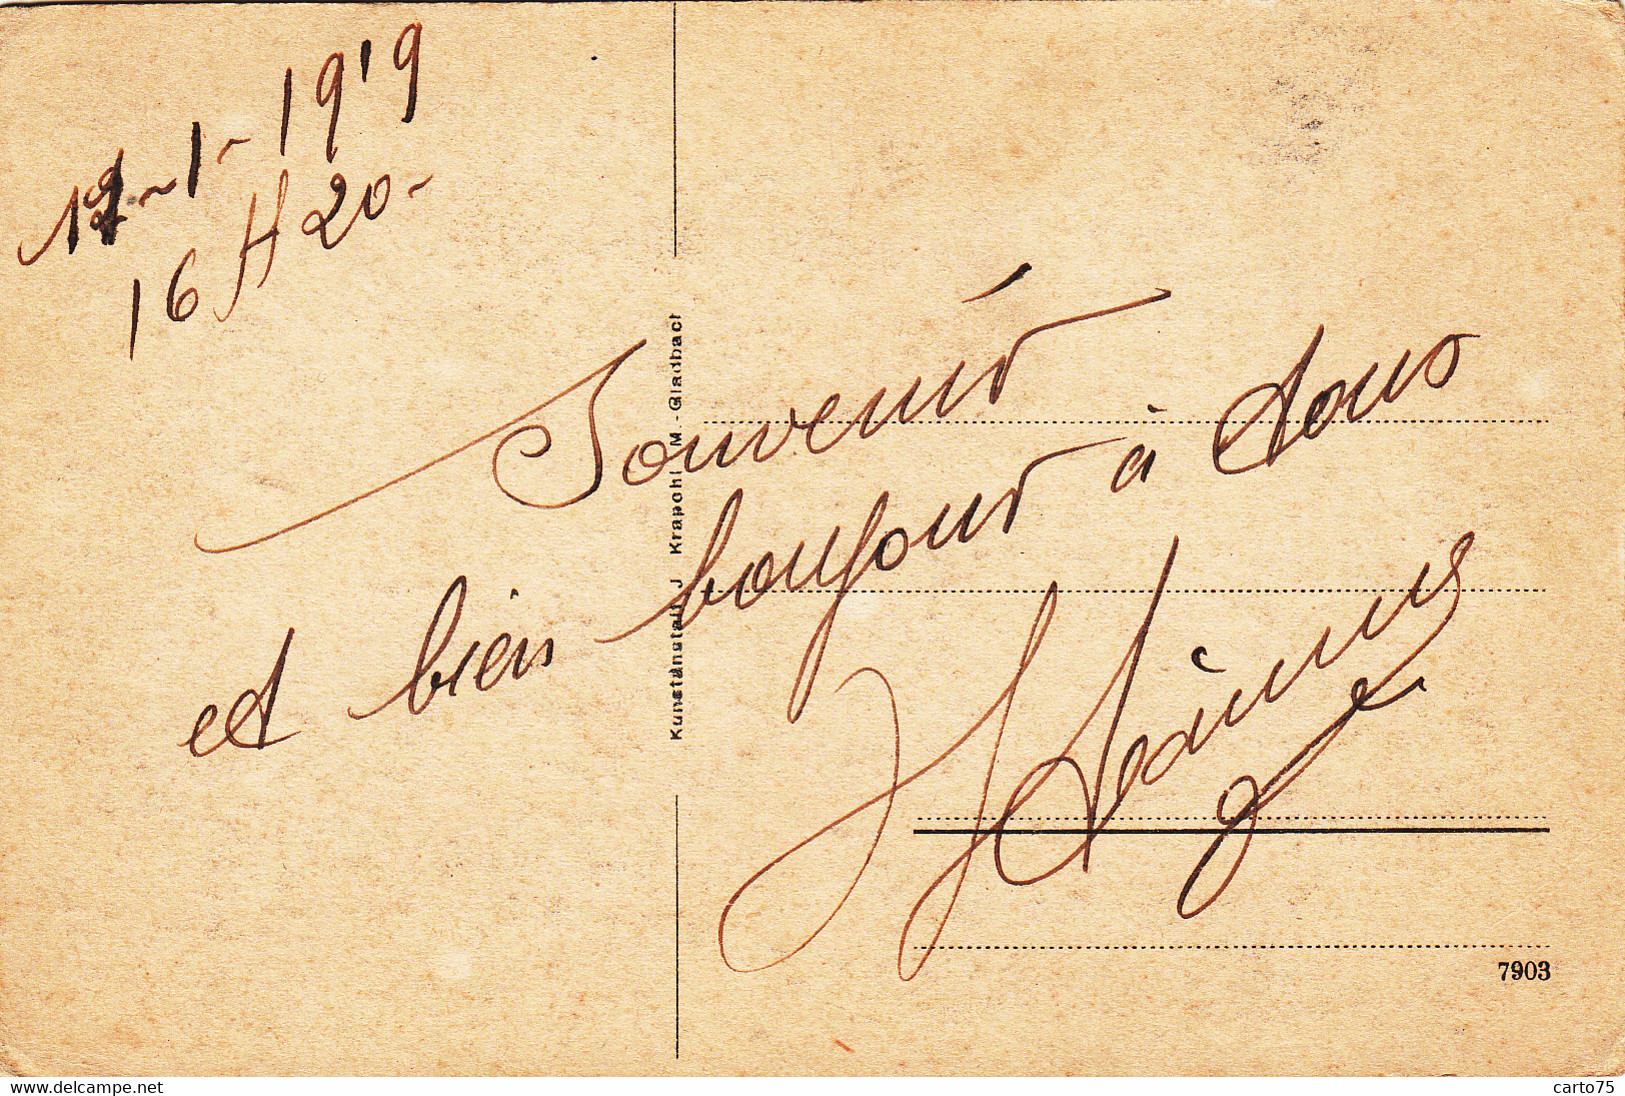 12-1-1919
16 H 20-
Souvenir
et bien bonjour à tous
Kunstanstalt J Krapohl M.-Gladbach
7903
www.delcampe.net
carto75